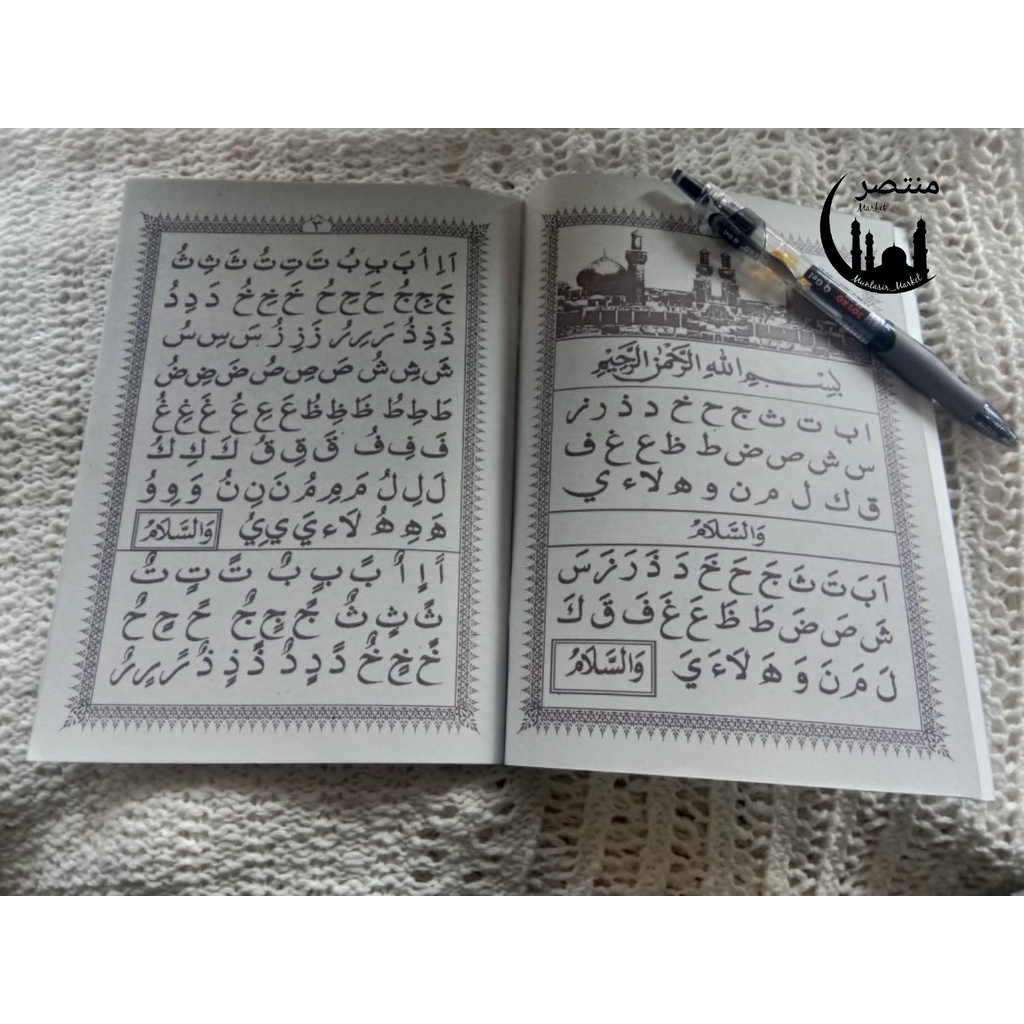 بِسْمِ اللّٰهِ الرَّحْمٰنِ الرَّحِيْمِ
ا ب ت ث ج ح خ د ذ ر ز
س ش ص ض ط ظ ع غ ف
ق ك ل م ن و ه لا ء ي
وَالسَّلَامُ
اَ بَ تَ ثَ جَ حَ خَ دَ ذَ رَ زَ سَ
شَ صَ ضَ طَ ظَ عَ غَ فَ قَ كَ
لَ مَ نَ وَ هَ لَا ءَ يَ
وَالسَّلَامُ
٣
اَ اِ اُ بَ بِ بُ تَ تِ تُ ثَ ثِ ثُ
جَ جِ جُ حَ حِ حُ خَ خِ خُ دَ دِ دُ
ذَ ذِ ذُ رَ رِ رُ زَ زِ زُ سَ سِ سُ
شَ شِ شُ صَ صِ صُ ضَ ضِ ضُ
طَ طِ طُ ظَ ظِ ظُ عَ عِ عُ غَ غِ غُ
فَ فِ فُ قَ قِ قُ كَ كِ كُ
لَ لِ لُ مَ مِ مُ نَ نِ نُ وَ وِ وُ
هَ هِ هُ لَا ءَ يَ يِ يُ
وَالسَّلَامُ
اً اٍ اٌ بً بٍ بٌ تً تٍ تٌ
ثً ثٍ ثٌ جً جٍ جٌ حً حٍ حٌ
خً خٍ خٌ دً دٍ دٌ ذً ذٍ ذٌ رً رٍ رٌ
منتصر
Market
Muntasir_Market
JOYKO